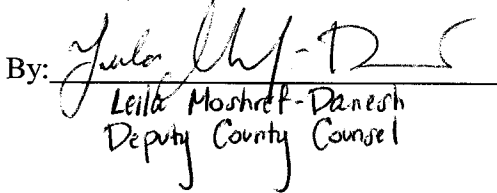 By:
Leila Moshref-Danesh
Deputy County Counsel